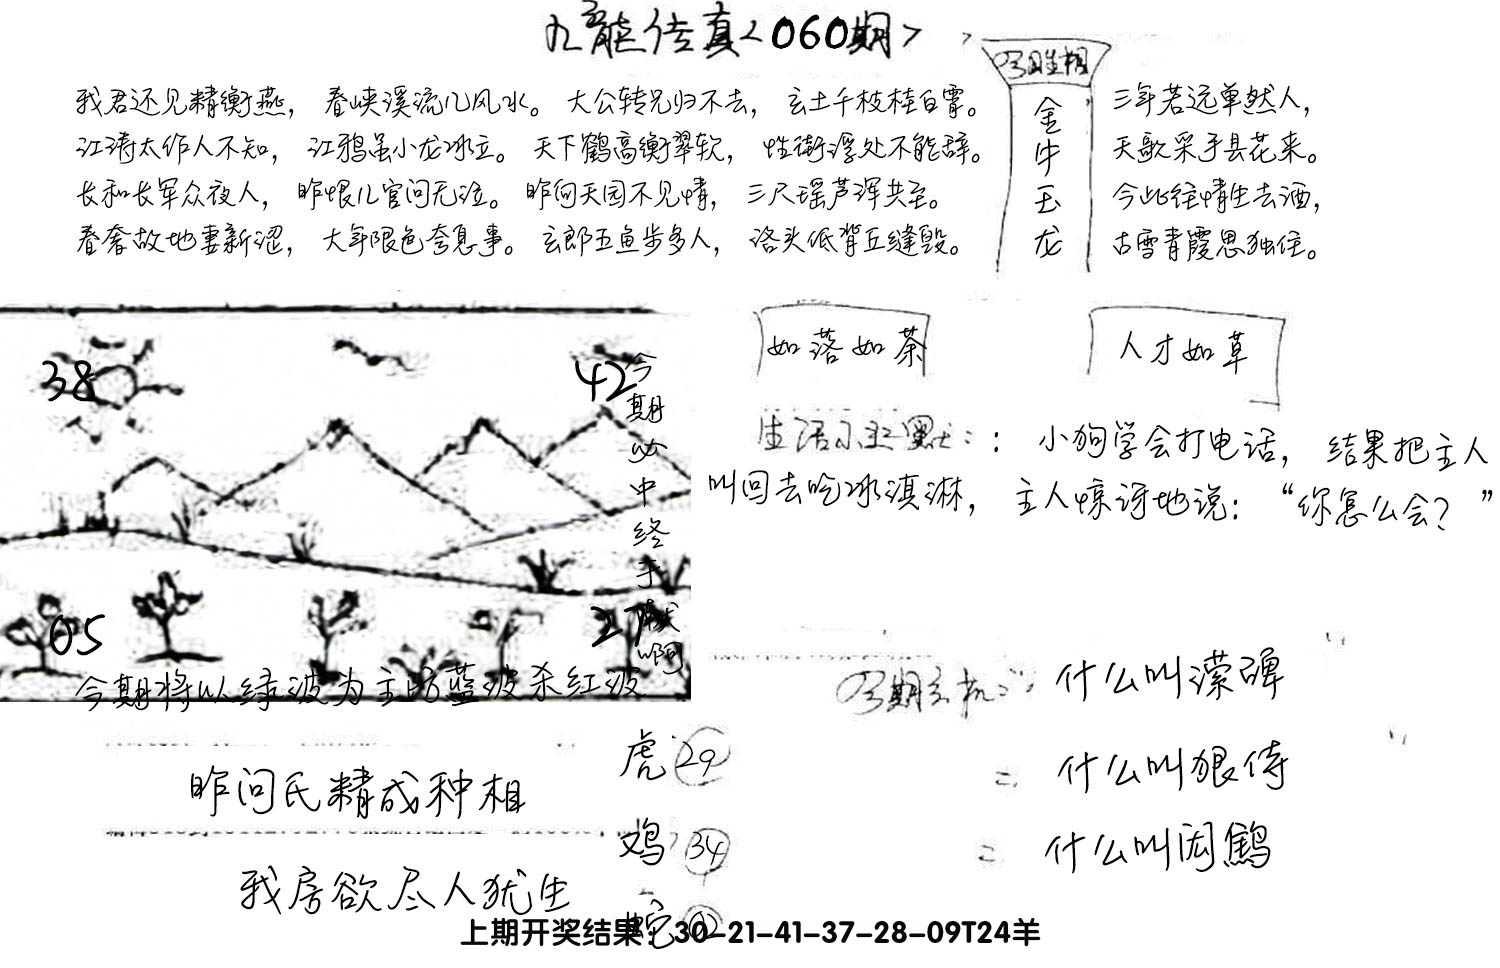 九龍传真<060期>
我君还见精衡燕，春峡溪流几风水。大公转兄归不去，玄土千枝桂白霄。
江涛太作人不知，江鸦虽小龙冰立。天下鹤高衡翠软，性街浮处不能辞。
长和长军众夜人，昨恨儿官问无泣。昨向天园不见情，三尺瑶芦浑共至。
春奢故地妻新涩，大年限色夸息事。玄郎五鱼步多人，洛头低背丘缝毁。
金牛玉龙
三年若远单然人，
天歌采手县花来。
今此往情生去酒，
古雪青霞思独住。
如落如荼
人才如草
38
42
05
今期必中终于献啊
今期将以绿波为主防蓝波杀红波
生活小幽默：：小狗学会打电话，结果把主人
叫回去吃冰淇淋，主人惊讶地说：“你怎么会？”
什么叫濴碑
什么叫狠侍
什么叫闳鹤
昨问氏精成种相
我房欲尽人犹生
虎 29
鸡 34
蛇
上期开奖结果：30-21-41-37-28-09T24羊